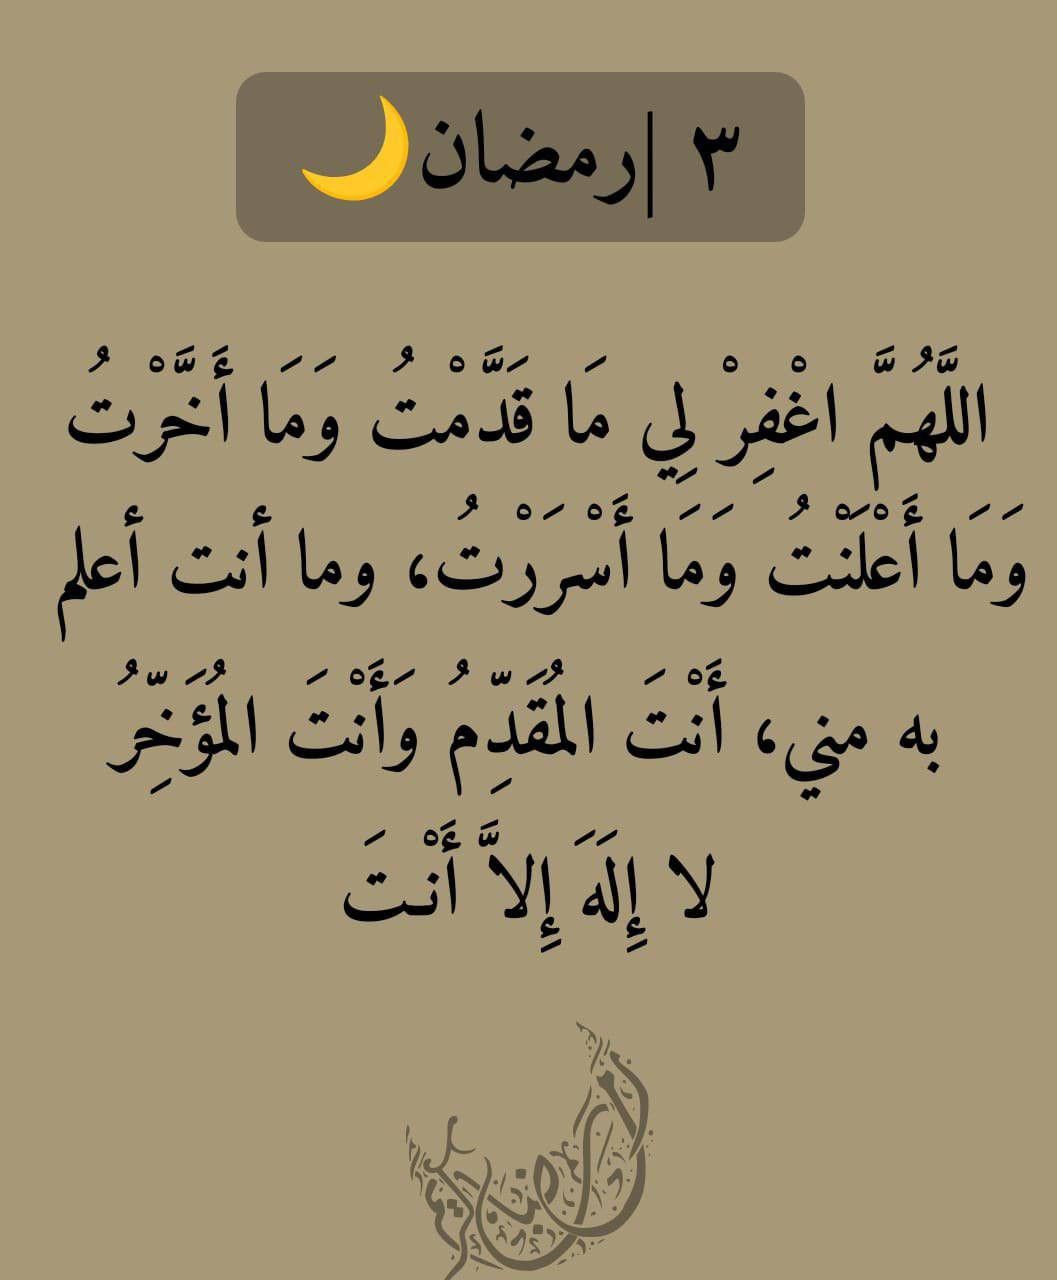 ٣ |رمضان🌙
اللَّهُمَّ اغْفِرْ لِي مَا قَدَّمْتُ وَمَا أَخَّرْتُ
وَمَا أَعْلَنْتُ وَمَا أَسْرَرْتُ، وما أنت أعلم
به مني، أَنْتَ المُقَدِّمُ وَأَنْتَ المُؤَخِّرُ
لا إِلَهَ إِلاَّ أَنْتَ
رمضان كريم